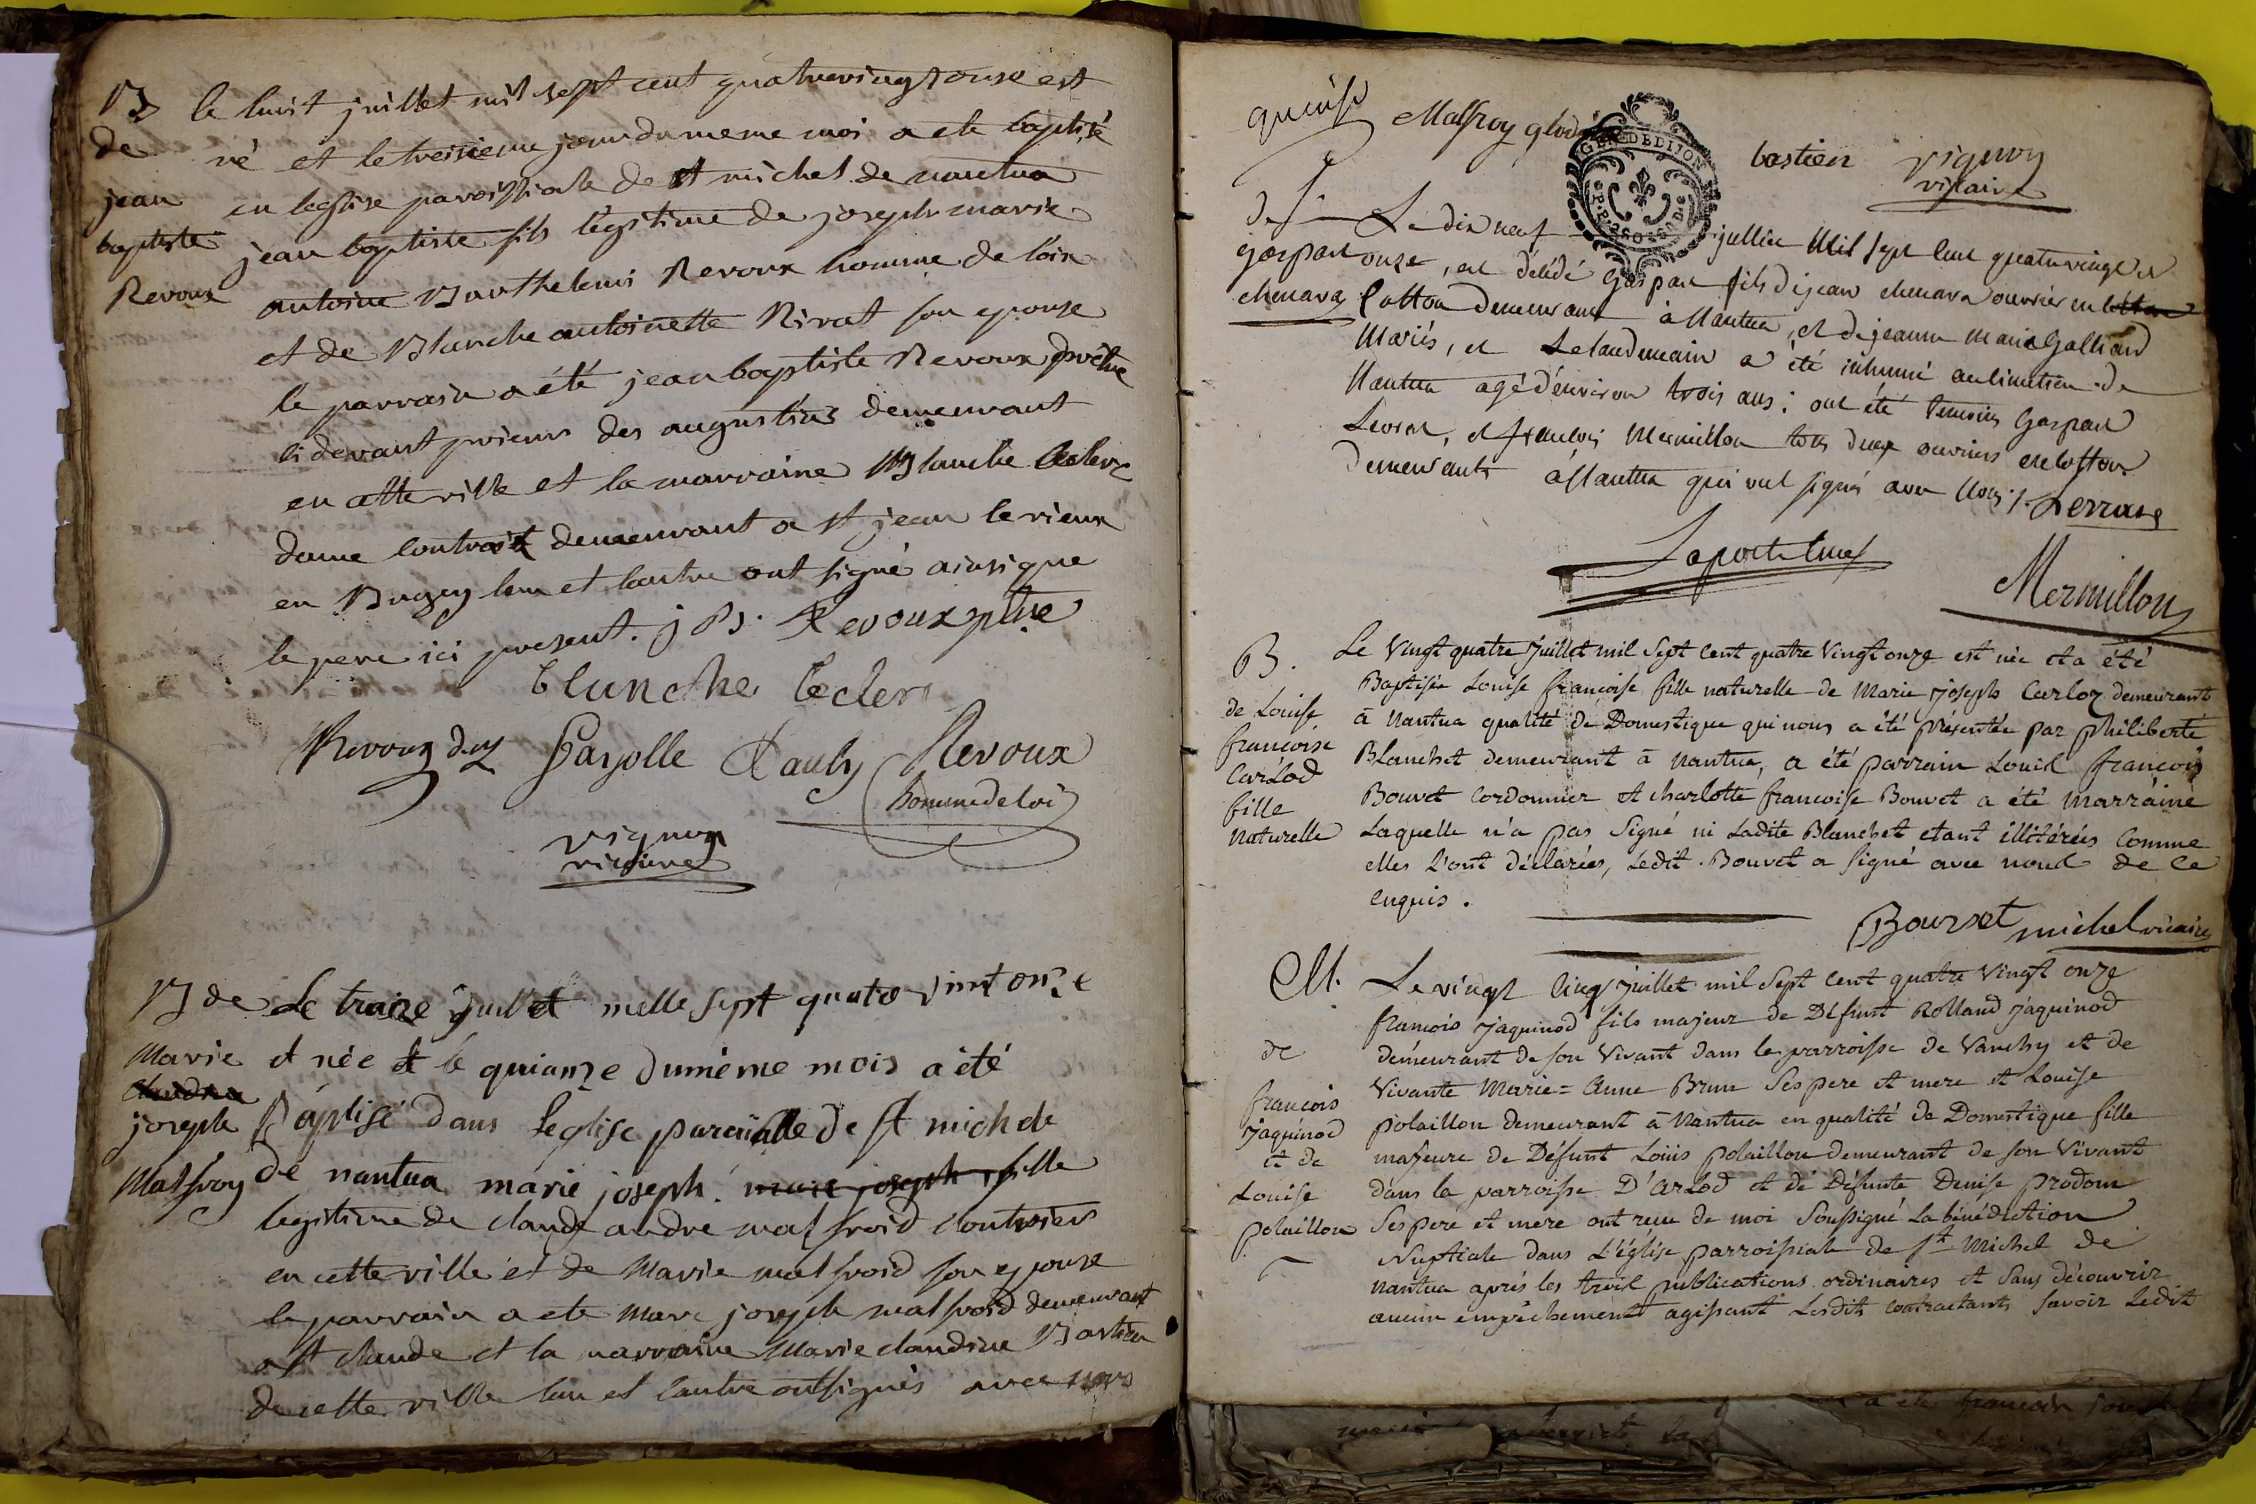 B
de
jean
baptiste
Revoux
le huit juillet mil sept cent quatrevingt onze est
né et le treisieme jour du meme moi a ete baptisé
en leglise paroissiale de st michel de nantua
jean baptiste fils légitime de joseph marie
antoine Barthelemi Revoux homme de loix
et de Blanche antoinette Rivat son epouse
le parrain a été jean baptiste Revoux prêtre
ci devant prieur des augustins demeurant
en cette ville et la marraine Blanche leclerc
dame contrait demeurant a st jean le vieux
en Bugey lun et lautre ont signé ainsi que
le pere ici present. j B. Revoux ptre
blanche leclerc
Revoux Gayolle Pauly Revoux
homme de loi
vignon
vicaire
B de
Marie
joseph
Malfroy
Le traize juillet melle sept quatro vint onze
et née et le quianze dumême mois a été
Baptisé dans leglise paroialle de st michele
de nantua marie joseph. marie joseph fille
legitime de claude andre malfroid
en cette ville et de Marie malfroid son epouse
le parrain a ete Marc joseph malfroid demeurant
a st claude et la marraine Marie claudine Bastien
de cette ville lun et lautre ont signés avec nous
Malfroy
bastien
vignon
vicaire
de
gaspar
chenavaz
Le dix neuf juillet Mil sept cent quatrevingt et
onze, est décédé Gaspar fils de jean chenava ouvrier en cotton
Cotton demeurant à Nantua, et de jeanne Marie Galliard
Mariés, et Le landemain a été inhumé au cimetiere de
Nantua agé d'environ trois ans: ont été temoins Gaspar
et francois Mermillon tous deux ouvriers en cotton
demeurants à Nantua qui ont signé avec Nous
Mermillon
B.
de Louise
francoise
Carlod
fille
naturelle
Le Vingt quatre Juillet mil Sept Cent quatre Vingt onze est née et a été
Baptisée Louise francoise fille naturelle de Marie joseph Carloz demeurant
à Nantua qualité de Domestique qui nous a été présentée par philiberte
Blanchet demeurant à Nantua, a été parrain Louis francois
Bouvet Cordonnier et charlotte francoise Bouvet a été marraine
Laquelle n'a pas signé ni Ladite Blanchet etant illitérées Comme
elles l'ont déclarées, Ledit Bouvet a signé avec nous de ce
enquis.
michel vicaire
M.
de
francois
jaquinod
et de
Louise
polaillon
Le vingt Cinq juillet mil Sept Cent quatre Vingt onze
francois jaquinod fils majeur de Défunt Rolland jaquinod
demeurant de son Vivant dans la parroisse de Vanchy et de
Vivante Marie=Anne Brun Ses pere et mere et Louise
polaillon demeurant à Nantua en qualité de Domestique fille
majeure de Défunt Louis polaillon demeurant de son Vivant
dans la parroisse D'Arlod et de Défunte Denise prodom
Ses pere et mere ont reçu de moi Soussigné La bénédiction
Nuptiale dans L'église parroissiale de St Michel de
Nantua aprés les trois publications ordinaires et Sans découvrir
aucun empêchement agissant Lesdits contractants Savoir Ledit